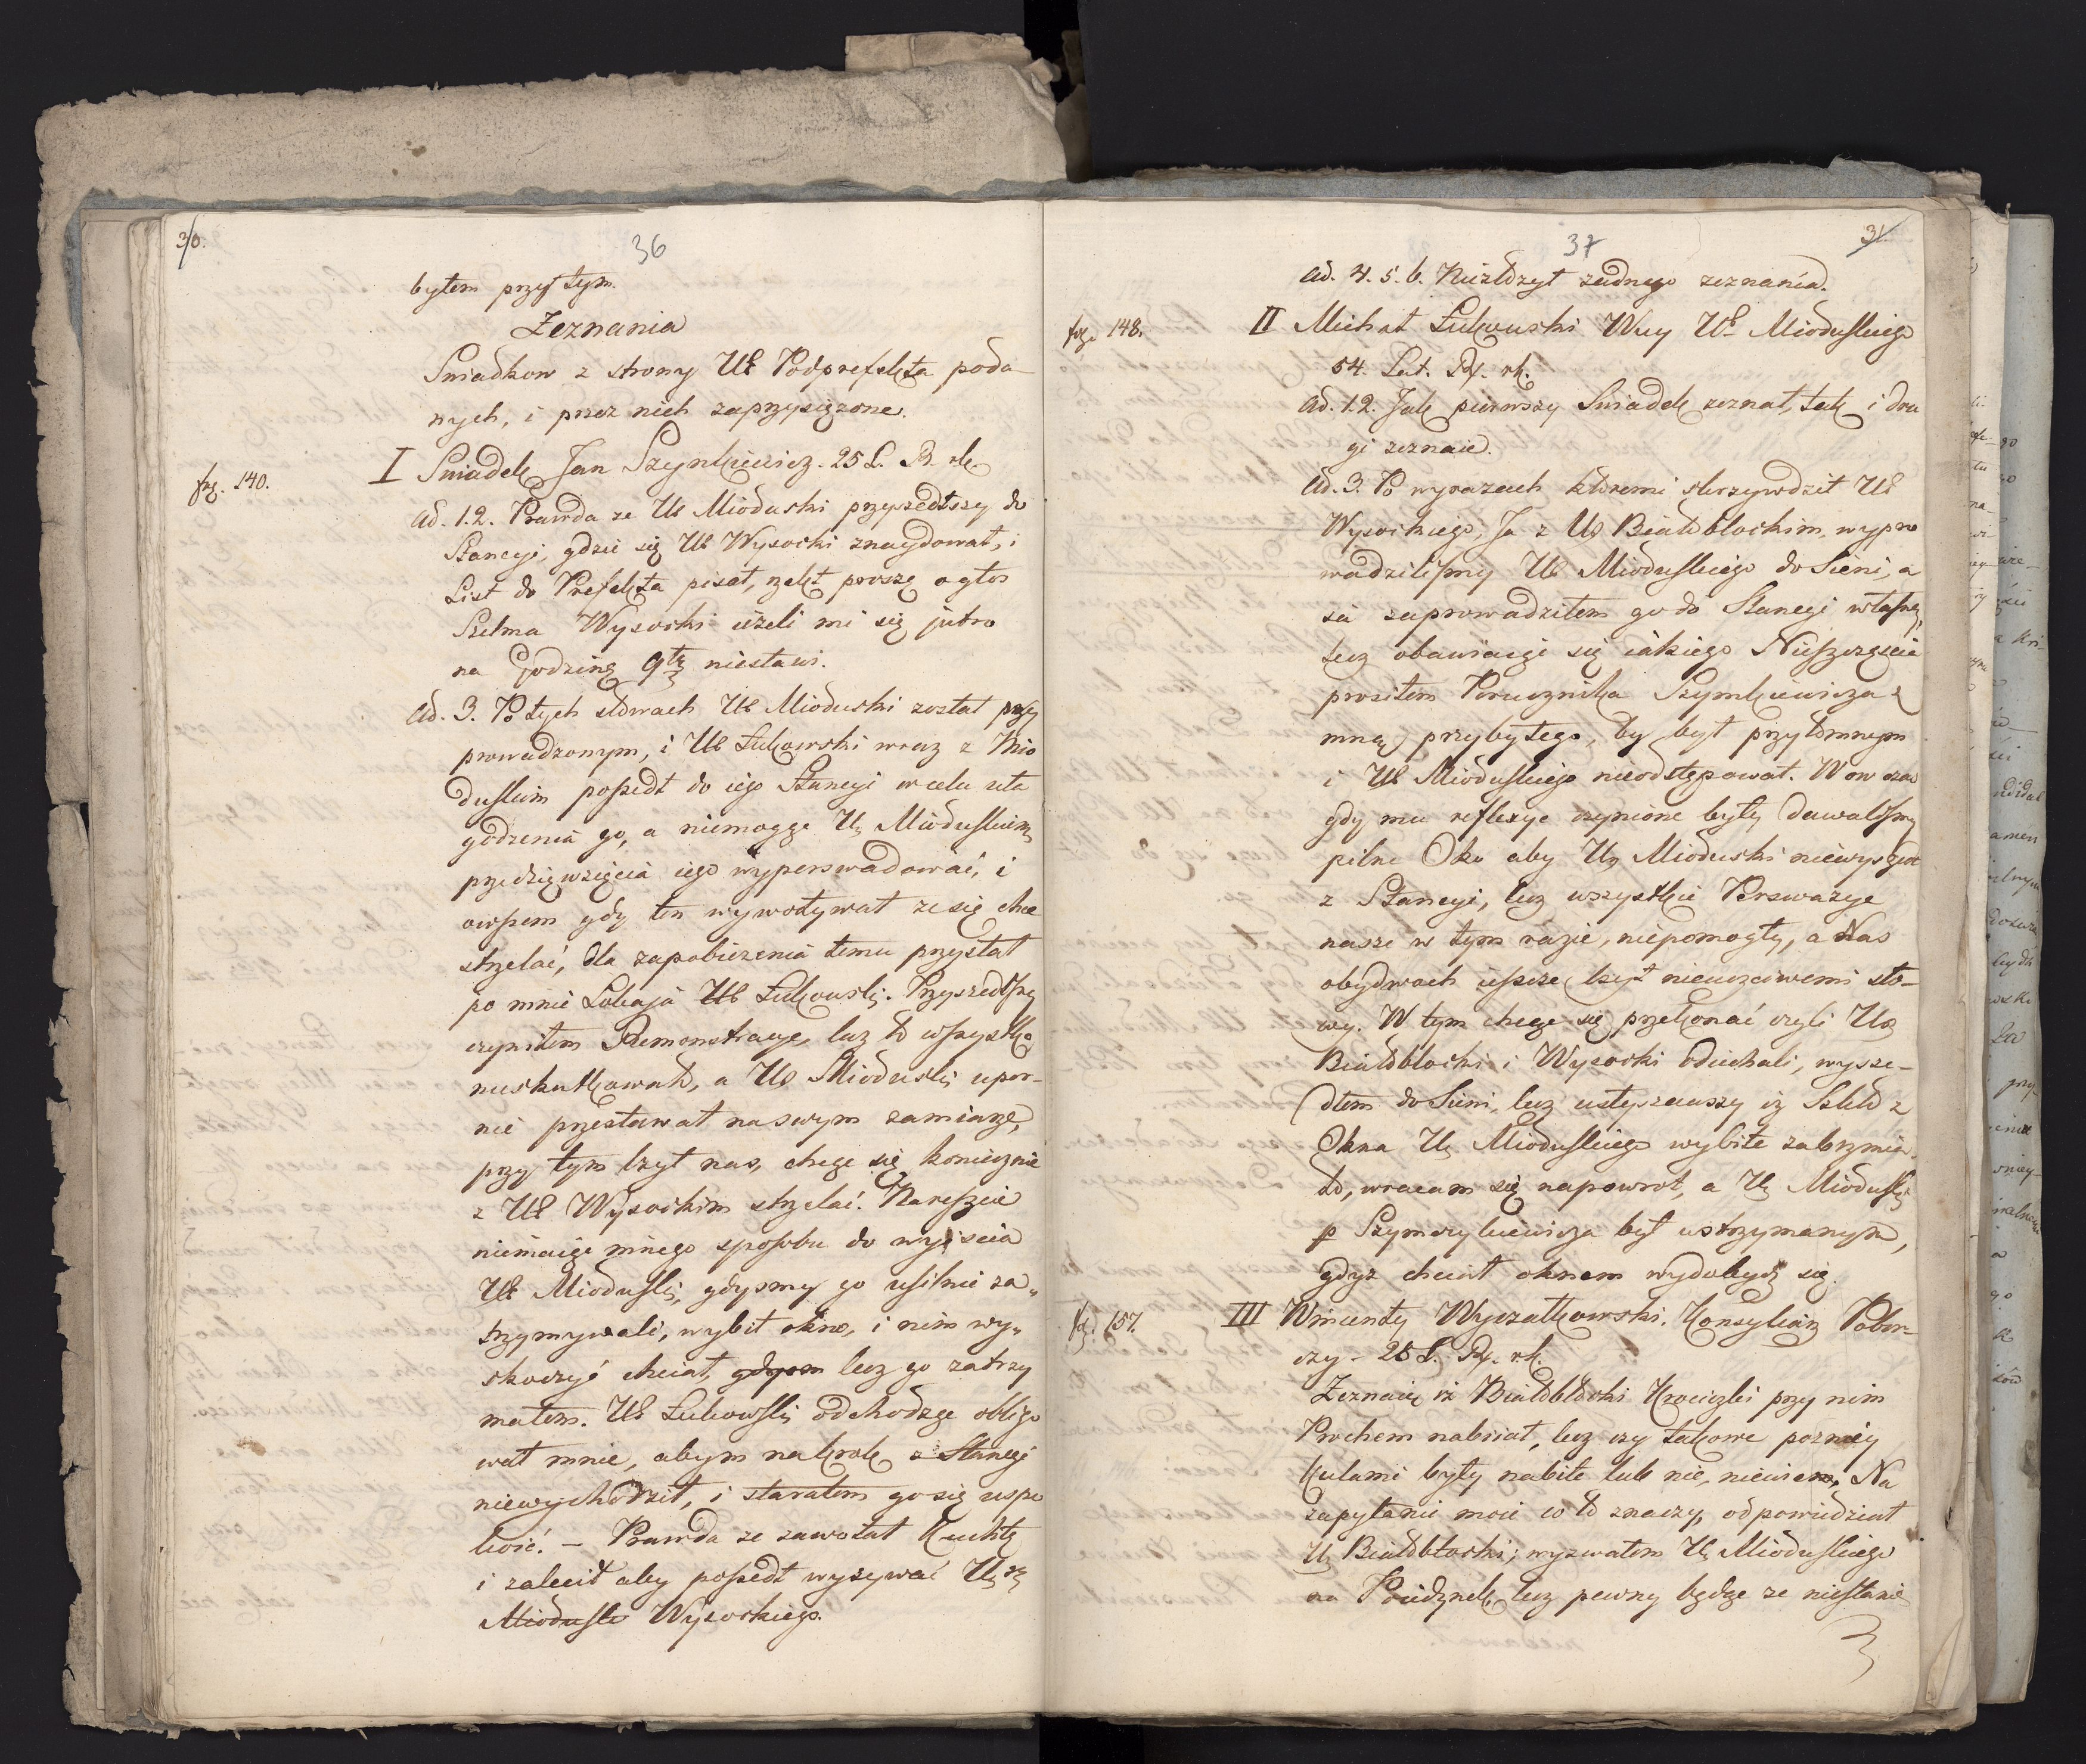 30.
36
byłem przy tym.
Zeznania
Swiadkow z strony Ur Podprefekta poda-
nych, i przez nich zaprzysiężone.
fol. 140.
I Swiadek Jan Szymkiewicz. 25 L. R. rk.
Ad. 1.2. Prawda ze Ur Mioduski przyszedłszy do
Stancyi, gdzie się Ur Wysocki znaydował, i
List do Prefekta pisał, rzekł proszę o głos
Szelma Wysocki ieżeli mi się jutro
na Godzinę 9tą niestawi.
Ad. 3. Po tych słowach Ur Mioduski został przy
prowadzonym, i Ur Łukowski wraz z Mio
duskim poszedł do iego Stancyi w celu uła
godzenia go, a niemogąc Ur Mioduskiemu
przedzięwzięcia iego wyperswadować, i
owszem gdy ten wywoływał ze się chce
strzelać, dla zapobieżenia temu przysłał
po mnie Lokaja Ur Łukowski. Przyszedłszy
czyniłem Remonstracye, lecz to wszystko
nieskutkowało, a Ur Mioduski upor-
nie przestawał na swym zamiarze,
przy tym lżył nas, chcąc się koniecznie
z Ur Wysockim strzelać. Nareszcie
niemaiąc innego sposobu do wyiscia
Ur Mioduski, gdysmy go usilnie za-
trzymywali, wybił okno, i nim wy-
skoczyć chciał, gdyom lecz go zatrzy
małem. Ur Łukowski odchodząc obligo
wał mnie, abym na krok z Stancyi
niewychodził, i starałem go się uspo
koić. – Prawda ze zawołał Kuchtę
i zalecił aby poszedł wyzywać Ur
Miodusk Wysockiego.
37
31.
Ad. 4. 5. 6. Niezłozył zadnego zeznania.
fol. 148.
II Michał Łukowski Wuy Ur Mioduskiego
54. Lat. R. rk.
Ad. 1.2. Jak pierwszy Swiadek zeznał, tak i dru
gi zeznaie.
Ad. 3. Po wyrazach ktoremi skrzywdził Ur
Wysockiego, Ja z Ur Białobłockim, wypro
wadzilismy Ur Mioduskiego do Sieni, a
ia zaprowadziłem go do Stancyi własney,
lecz obawiaiąc się iakiego Nieszczęscia
prosiłem Porucznika Szymkiewicza z
mną przybyłego, by był przytomnym
i Ur Mioduskiego nieodstępował. W on czas
gdy mu reflexye czynione były dawalismy
pilne Oko aby Ur Mioduski niewyszedł
z Stancyi, lecz wszystkie Perswazye
nasze w tym razie, niepomogły, a Nas
obydwoch ieszcze lżył nieuczciwemi sło-
wy. W tym chcąc się przekonać czyli Ur
Białobłocki i Wysocki odiechali, wysze-
dłem do Sieni, lecz usłyszawszy iz Szkło z
Okna Ur Mioduskiego wybite zabrzmia-
ło, wracam się napowrot, a Ur Mioduski
p Szymczykiewicza był wstrzymanym,
gdyz chciał oknem wydobydz się.
fol. 157.
III Wincenty Wyczałkowski. Konsyliarz Pobor-
czy – 28 L. R. rk.
Zeznaie iz Białobłocki Krociczki przy nim
Prochem nabiiał, lecz czy takowe pozniey
Kulami były nabite lub nie, niewiem, Na
zapytanie moie co to znaczy, odpowiedział
Ur Białobłocki; wyzwałem Ur Mioduskiego
na Poiedynek, lecz pewny będąc ze niestanie